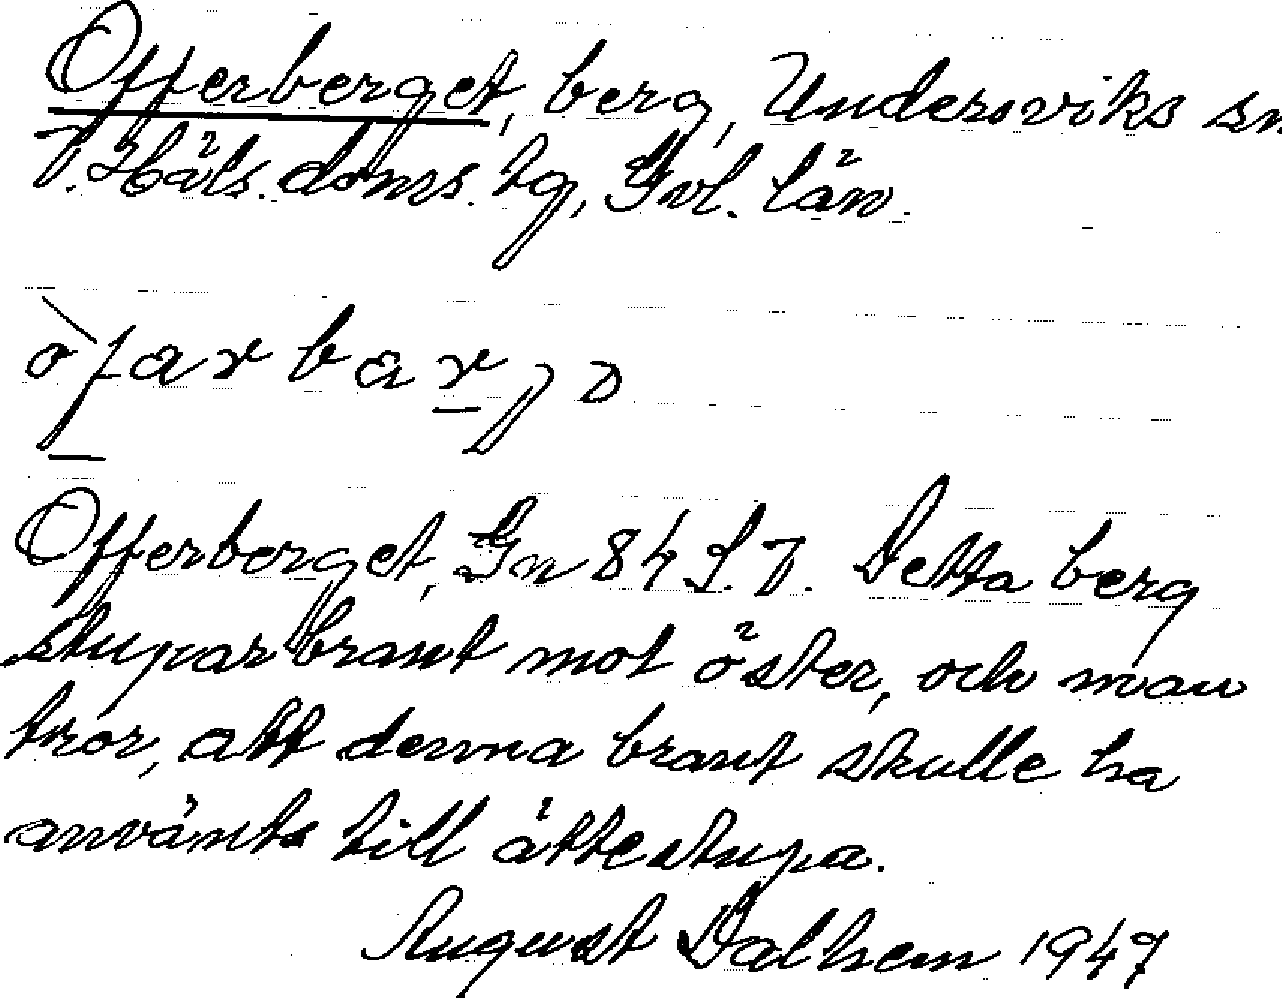 Offerberget, berg, Undersviks sn
V. Häls. doms. tg, Gvl. län.
òfarbarjɔ
Offerberget, Gn 84 S. V. Detta berg
stupar brant mot öster, och man
tror, att denna brant skulle ha
använts till ättestupa.
August Dalhem 1947